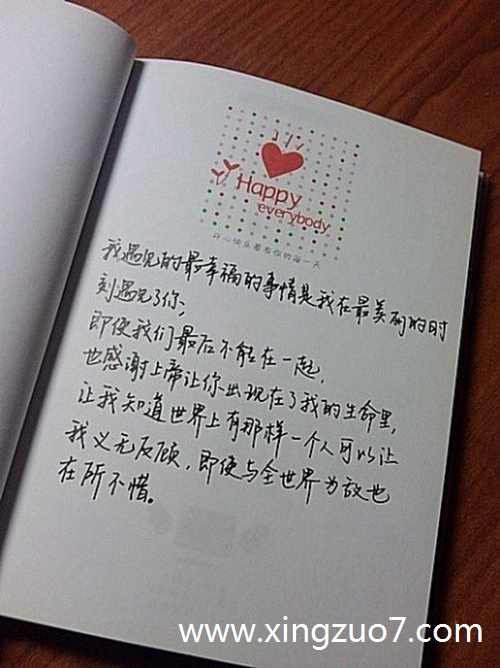 Happy
everybody
开心快乐着有你的每一天
我遇见的最幸福的事情是我在最美丽的时
刻遇见了你;
即使我们最后不能在一起,
也感谢上帝让你出现在了我的生命里,
让我知道世界上有那样一个人可以让
我义无反顾,即使与全世界为敌也
在所不惜。
www.xingzuo7.com